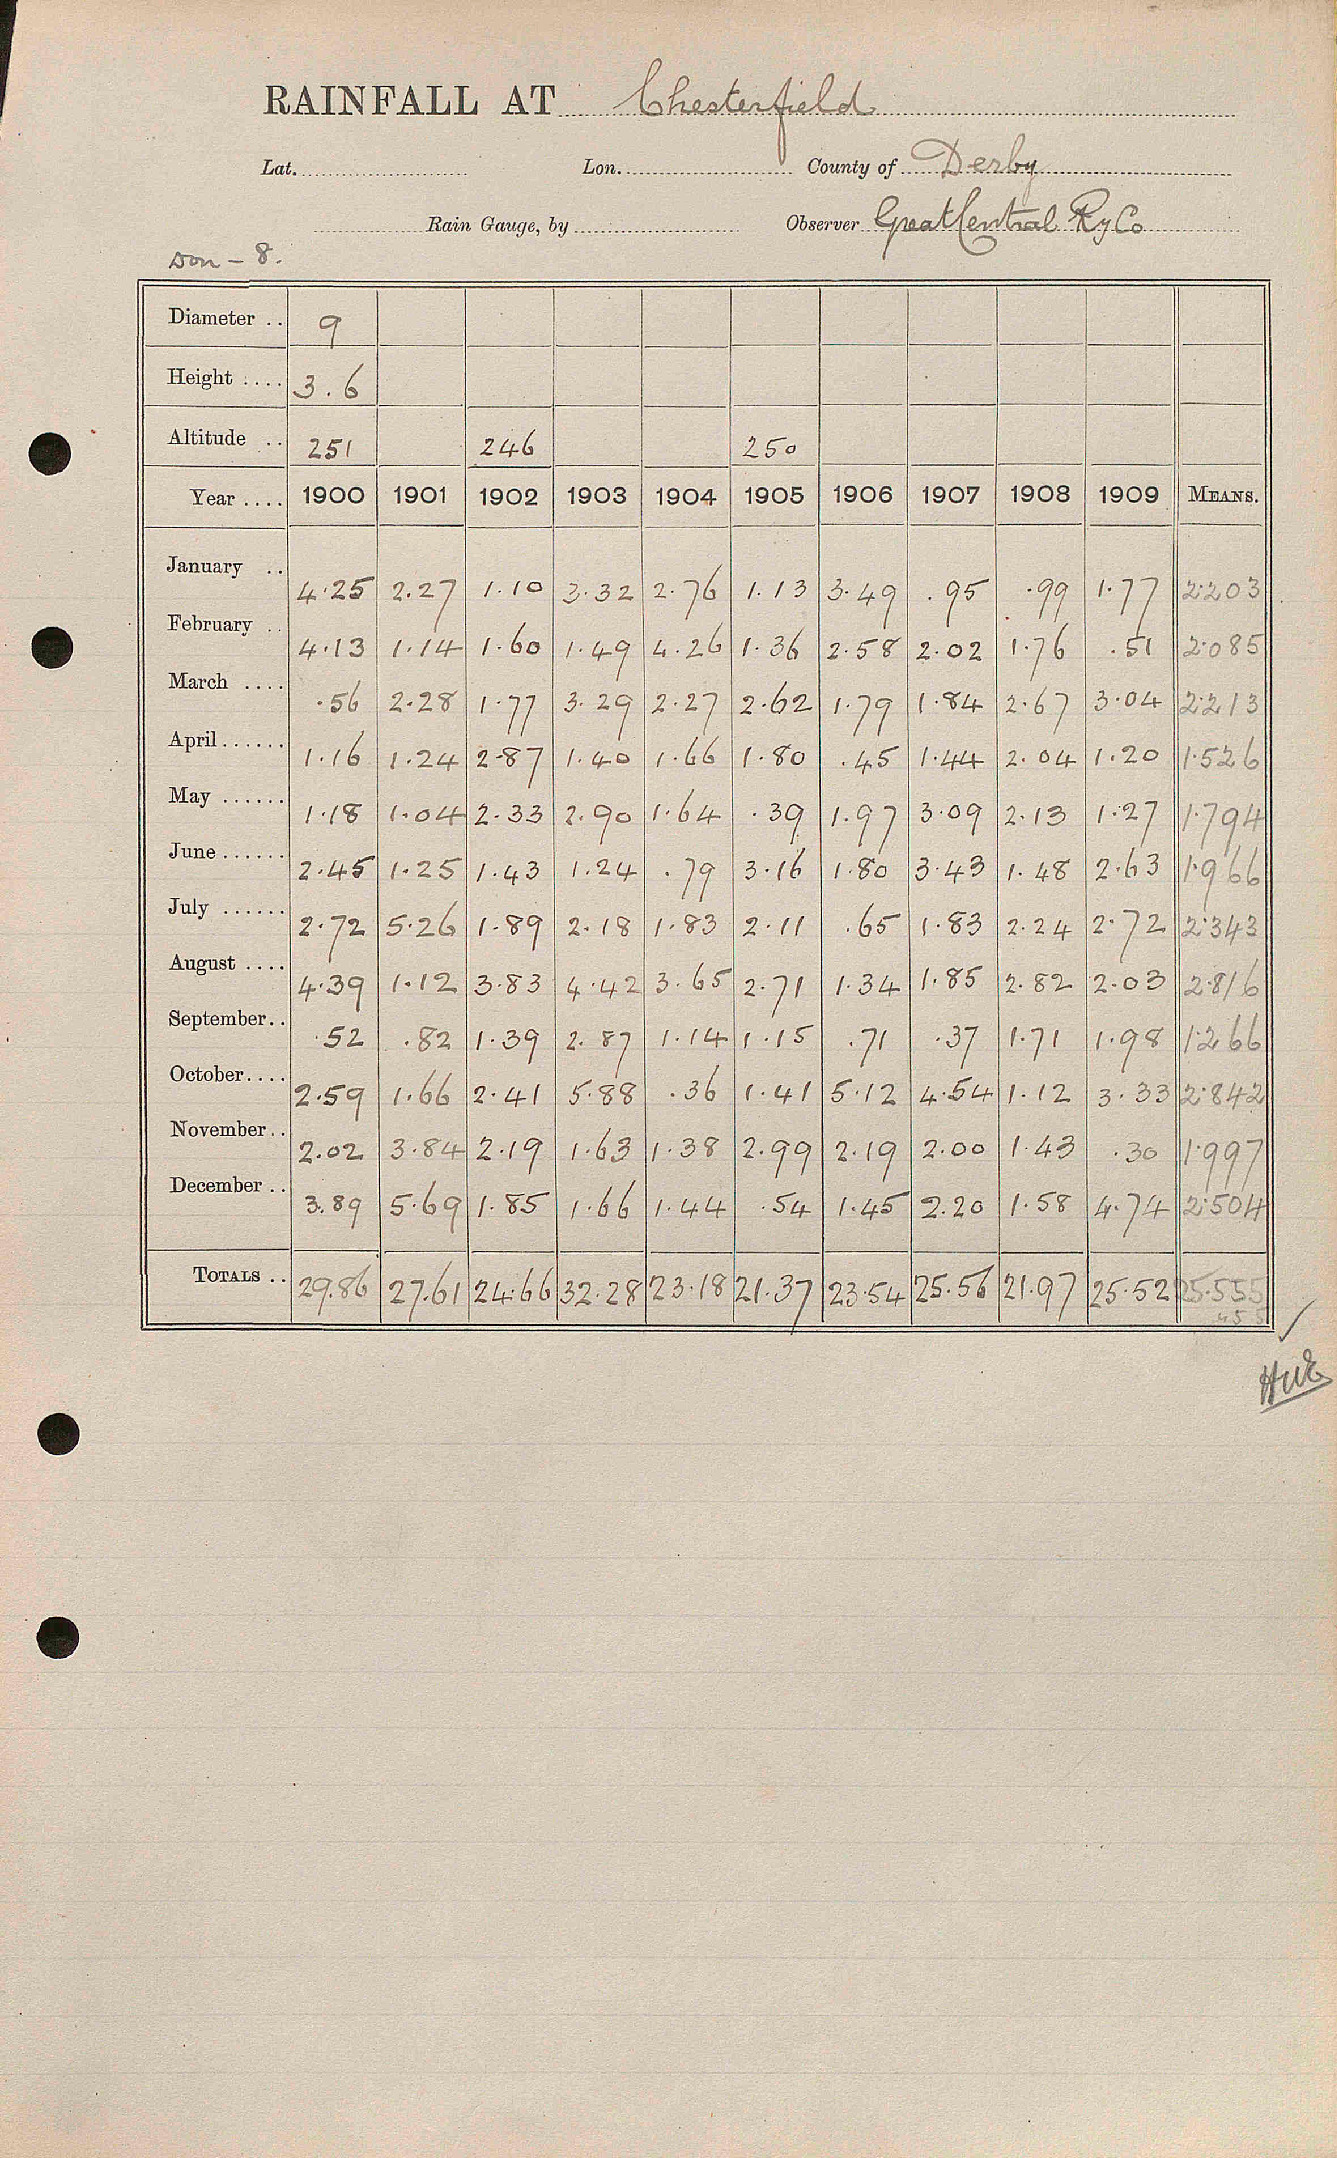 RAINFALL AT Chesterfield
Lat. Lon. County of Derby
Rain Gauge, by Observer Great Central Ry Co
Don - 8.
Diameter .. 9
Height .... 3.6
Altitude .. 251 246 250
Year .... 1900 1901 1902 1903 1904 1905 1906 1907 1908 1909 MEANS.
January .. 4.25 2.27 1.10 3.32 2.76 1.13 3.49 .95 .99 1.77 2.203
February .. 4.13 1.14 1.60 1.49 4.26 1.36 2.58 2.02 1.76 .51 2.085
March .... .56 2.28 1.77 3.29 2.27 2.62 1.79 1.84 2.67 3.04 2.213
April ...... 1.16 1.24 2.87 1.40 1.66 1.80 .45 1.44 2.04 1.20 1.526
May ...... 1.18 1.04 2.33 2.90 1.64 .39 1.97 3.09 2.13 1.27 1.794
June ...... 2.45 1.25 1.43 1.24 .79 3.16 1.80 3.43 1.48 2.63 1.966
July ...... 2.72 5.26 1.89 2.18 1.83 2.11 .65 1.83 2.24 2.72 2.343
August .... 4.39 1.12 3.83 4.42 3.65 2.71 1.34 1.85 2.82 2.03 2.816
September.. .52 .82 1.39 2.87 1.14 1.15 .71 .37 1.71 1.98 1.266
October.... 2.59 1.66 2.41 5.88 .36 1.41 5.12 4.54 1.12 3.33 2.842
November.. 2.02 3.84 2.19 1.63 1.38 2.99 2.19 2.00 1.43 .30 1.997
December .. 3.89 5.69 1.85 1.66 1.44 .54 1.45 2.20 1.58 4.74 2.504
TOTALS .. 29.86 27.61 24.66 32.28 23.18 21.37 23.54 25.56 21.97 25.52 25.555